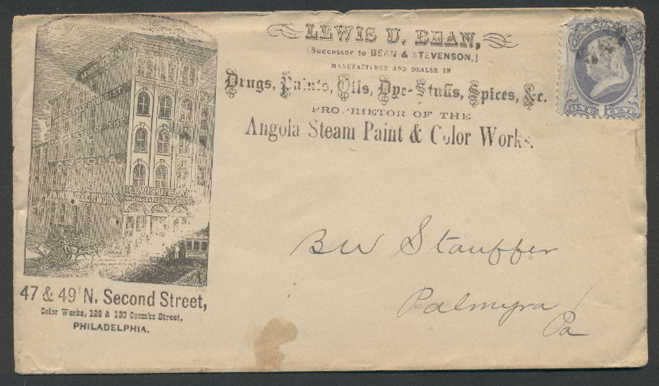 LEWIS U. BEAN,
(Successor to BEAN & STEVENSON,)
MANUFACTURER AND DEALER IN
Drugs, Paints, Oils, Dye-Stuffs, Spices, &c.
PROPRIETOR OF THE
Angola Steam Paint & Color Works.
ONE CENT
B W Stauffer
Palmyra
Pa
47 & 49 N. Second Street,
Color Works, 128 & 130 Coombs Street,
PHILADELPHIA.